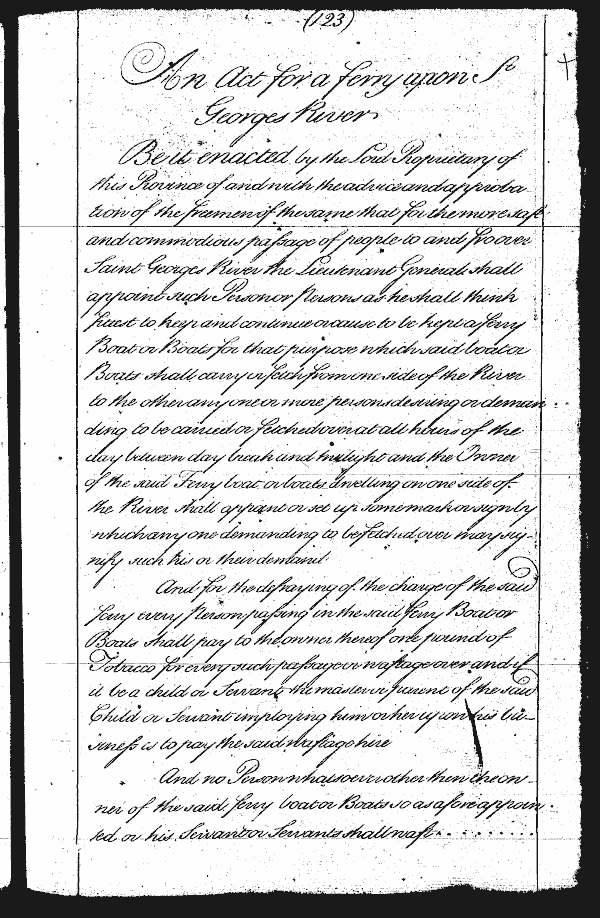 (123)
An Act for a ferry upon St
Georges River
Be it enacted by the Lord Proprietary of
this Province of and with the advice and approba
tion of the freemen of the same that for the more safe
and commodious passage of people to and fro over
Saint Georges River the Lieutenant Generall shall
appoint such Person or Persons as he shall think
fittest to keep and continue or cause to be kept a ferry
Boat or Boats for that purpose which said boat or
Boats shall carry or fetch from one side of the River
to the other any one or more persons desiring or deman
ding to be carried or fetched over at all hours of the
day between day break and twilight and the Owner
of the said Ferry boat or boats dwelling on one side of
the River shall appoint or set up some mark or sign by
which any one demanding to be fetched over may sig-
nify such his or their demand
And for the defraying of the charge of the said
ferry every Person passing in the said ferry Boat or
Boats shall pay to the owner thereof one pound of
Tobacco for every such passage or waftage over and if
it be a child or Servant the master or parent of the said
Child or Servant imploying him or her upon his bu-
siness is to pay the said waftage hire
And no Person whatsoever other then the ow-
ner of the said ferry boat or Boats so as afore appoin-
ted or his Servant or Servants shall waft